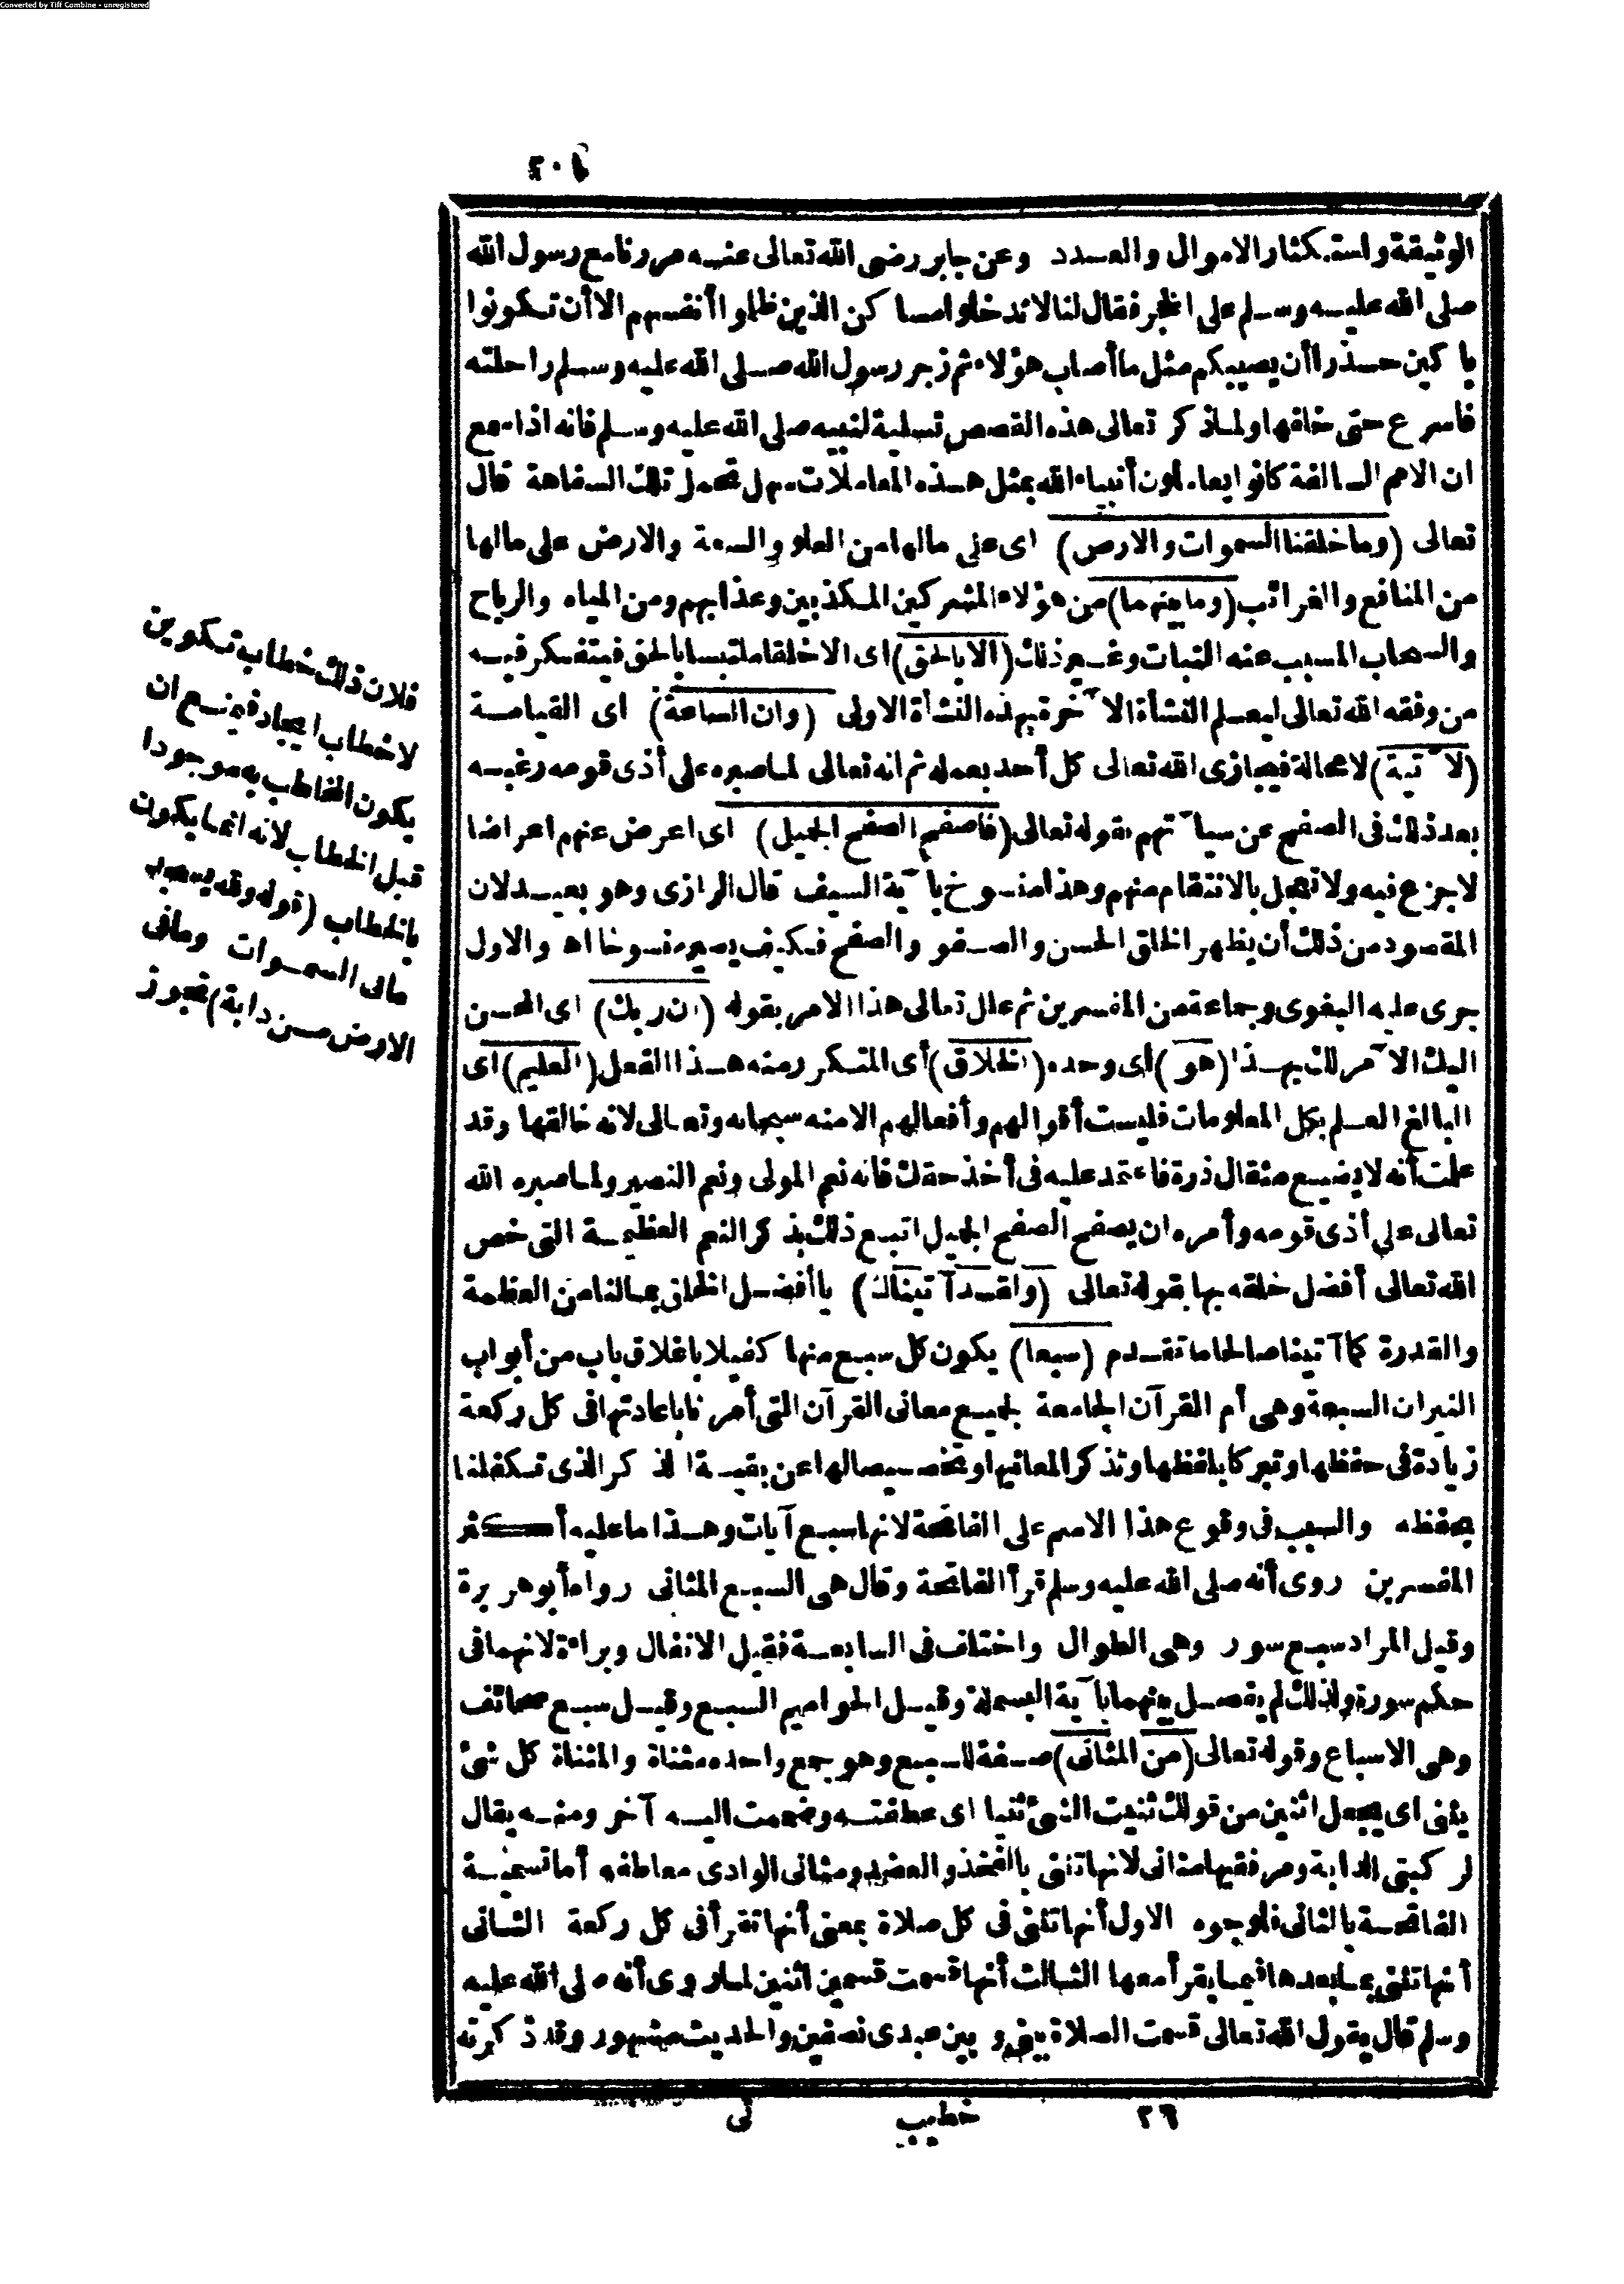 Converted by Tiff Combine - unregistered
٢٠١
الوثيقة واستكثار الاموال والعدد وعن جابر رضى الله تعالى عنه مررنا مع رسول الله
صلى الله عليه وسلم على الحجر فقال لنا لا تدخلوا مساكن الذين ظلموا أنفسهم الا أن تكونوا
باكين حذرا أن يصيبكم مثل ما أصاب هؤلاء ثم زجر رسول الله صلى الله عليه وسلم راحلته
فاسرع حتى خلفها ولما ذكر تعالى هذه القصص تسلية لنبيه صلى الله عليه وسلم فانه اذا سمع
ان الامم السالفة كانوا يعاملون أنبياء الله بمثل هذه المعاملات سهل تحمل تلك السفاهة قال
تعالى (وما خلقنا السموات والارض) اى على مالها من العلو والسعة والارض على مالها
من المنافع والغرائب (وما بينهما) من هؤلاء المشركين المكذبين وعذابهم ومن المياه والرياح
والسحاب المسبب عنه النبات وغير ذلك (الا بالحق) اى الا خلقا ملتبسا بالحق فيتفكر فيه
من وفقه الله تعالى ليعلم النشأة الآخرة بهذه النشأة الاولى (وان الساعة) اى القيامة
(لآتية) لا محالة فيجازى الله تعالى كل أحد بعمله ثم انه تعالى لما صبره على أذى قومه رغبه
بعد ذلك فى الصفح عن سيآتهم بقوله تعالى (فاصفح الصفح الجميل) اى اعرض عنهم اعراضا
لا جزع فيه ولا تعجل بالانتقام منهم وهذا منسوخ بآية السيف قال الرازى وهو بعيد لان
المقصود من ذلك أن يظهر الخلق الحسن والعفو والصفح فكيف يصير منسوخا اه والاول
جرى عليه البغوى وجماعة من المفسرين ثم علل تعالى هذا الامر بقوله (ان ربك) اى المحسن
اليك الآمر لك بهذا (هو) أى وحده (الخلاق) أى المتكرر منه هذا الفعل (العليم) اى
البالغ العلم بكل المعلومات فليست أقوالهم وأفعالهم الا منه سبحانه وتعالى لانه خالقها وقد
علمت أنه لا يضيع مثقال ذرة فاعتمد عليه فى أخذ حقك فانه نعم المولى ونعم النصير ولما صبره الله
تعالى على أذى قومه وأمره ان يصفح الصفح الجميل اتبع ذلك بذكر النعم العظيمة التى خص
الله تعالى أفضل خلقه بها بقوله تعالى (ولقد آتيناك) يا أفضل الخلق بمالنا من العظمة
والقدرة كما آتينا صالحا ما تقدم (سبعا) يكون كل سبع منها كفيلا باغلاق باب من أبواب
النيران السبعة وهى أم القرآن الجامعة لجميع معانى القرآن التى أمرنا باعادتها فى كل ركعة
زيادة فى حفظها وتبركا بلفظها وتذكرا لمعانيها وتخصيصا لها عن بقية الذكر الذى تكفلنا
بحفظه والسبب فى وقوع هذا الاسم على الفاتحة لانها سبع آيات وهذا ما عليه أكثر
المفسرين روى أنه صلى الله عليه وسلم قرأ الفاتحة وقال هى السبع المثانى رواه أبو هريرة
وقيل المراد سبع سور وهى الطوال واختلف فى السابعة فقيل الانفال وبراءة لانهما فى
حكم سورة ولذلك لم يفصل بينهما بآية البسملة وقيل الحواميم السبع وقيل سبع صحائف
وهى الاسباع وقوله تعالى (من المثانى) صفة للسبع وهو جمع واحده مثناة والمثناة كل شئ
يثنى اى يجعل اثنين من قولك ثنيت الشئ ثنيا اى عطفته وضممت اليه آخر ومنه يقال
لركبتى الدابة ومرفقيها مثانى لانها تثنى بالفخذ والعضد ومثانى الوادى معاطفه أما تسمية
الفاتحة بالمثانى فلوجوه الاول أنها تثنى فى كل صلاة بمعنى أنها تقرأ فى كل ركعة الثانى
أنها تثنى بما بعدها فيما يقرأ معها الثالث أنها قسمت قسمين اثنين لما روى أنه صلى الله عليه
وسلم قال يقول الله تعالى قسمت الصلاة بينى وبين عبدى نصفين والحديث مشهور وقد ذكرته
٢٦ خطيب نى
فلان ذلك خطاب تكوين
لا خطاب ايجاد فيمنع ان
يكون المخاطب به موجودا
قبل الخطاب لانه انما يكون
بالخطاب (قوله ولله يسجد
ما فى السموات وما فى
الارض من دابة) تجوز